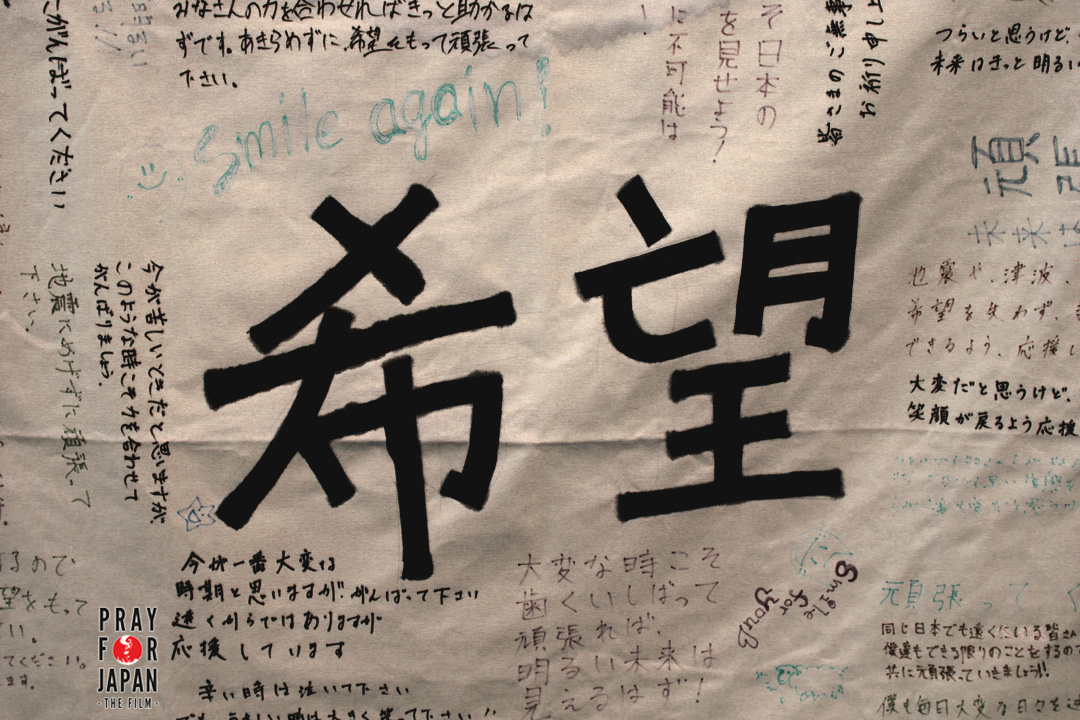 みなさんの力を合わせればきっと助かるは
ずです。あきらめずに、希望をもって頑張って
下さい。
Smile again!
そ日本の
を見せよう!
に不可能は
皆さまのご無事
お祈り申し上
つらいと思うけど、
未来はきっと明るい
頑張
未来は
がんばってください
地震にめげずに頑張って
下さい。
今が苦しいときだと思いますが、
このような時こそ力を合わせて
がんばりましょう。
希望
地震や、津波、
希望を失わず、
できるよう、応援し
大変だと思うけど、
笑顔が戻るよう応援
今が一番大変な
時期と思いますが!がんばって下さい
遠くからではありますが
応援しています
辛い時は泣いて下さい
大変な時こそ
歯くいしばって
頑張れば、
明るい未来は
見えるはず!
Smile
for
you
頑張って
同じ日本でも遠くにいる皆さん
僕達もできる限りのことをするので
共に頑張っていきましょう!!
僕も毎日大変な日々を
るので
望をもって
てください。
PRAY
FOR
JAPAN
-THE FILM-